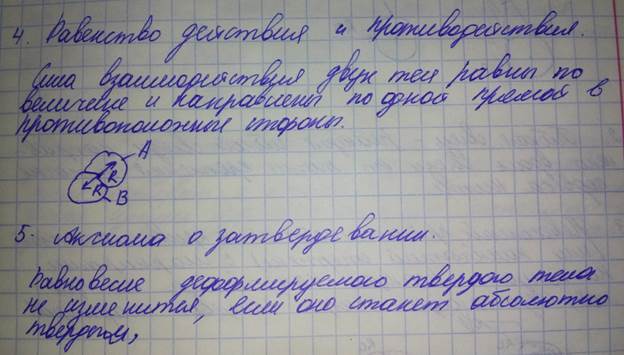 4. Равенство действия и противодействия.
Сила взаимодействия двух тел равны по
величине и направлены по одной прямой в
противоположные стороны.
A
R
R
B
5. Аксиома о затвердевании.
Равновесие деформируемого твердого тела
не изменится, если оно станет абсолютно
твердым,